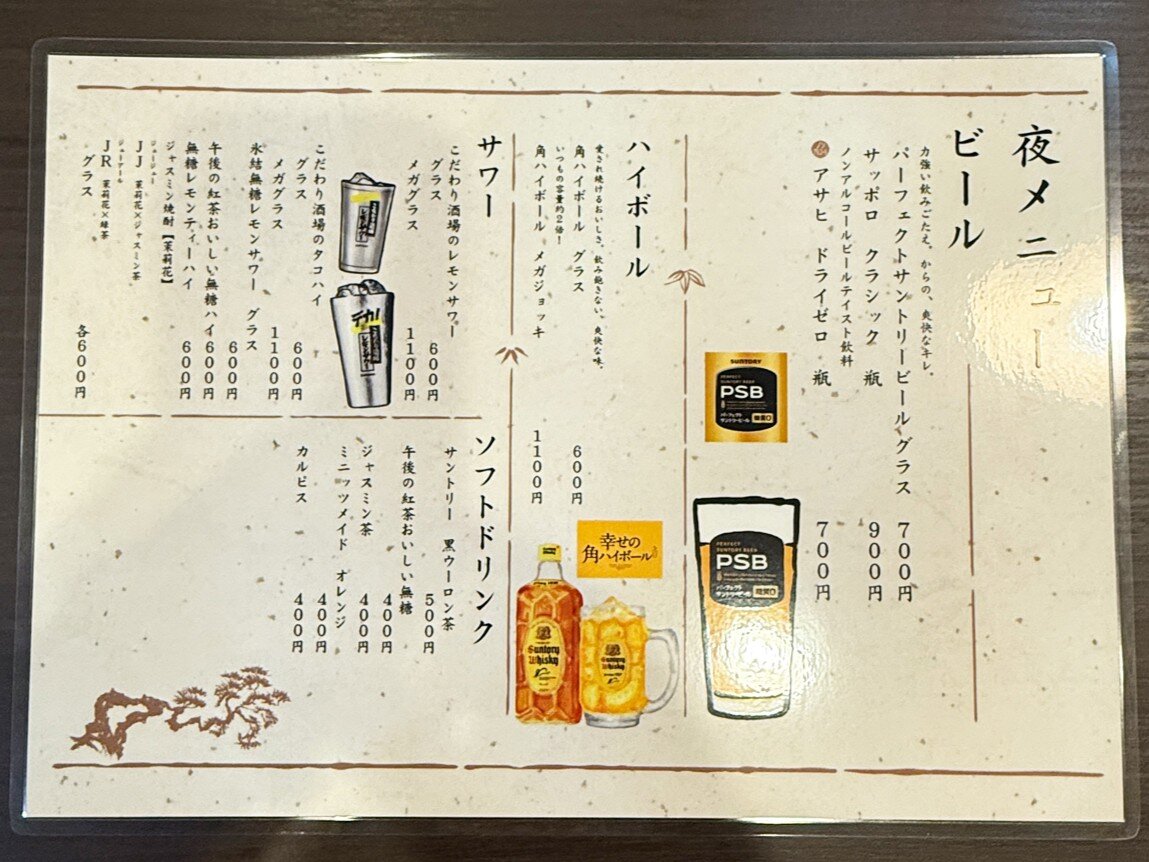 夜メニュー
ビール
力強い飲みごたえ。からの、爽快なキレ。
パーフェクトサントリービール グラス 700円
サッポロ クラシック 瓶 900円
ノンアルコールビールテイスト飲料
アサヒ ドライゼロ 瓶 700円
SUNTORY
PERFECT
SUNTORY BEER
PSB
パーフェクト
サントリービール
糖質0
PERFECT
SUNTORY BEER
PSB
パーフェクト
サントリービール
糖質0
ハイボール
愛され続けるおいしさ。飲み飽きない、爽快な味。
角ハイボール グラス 600円
いつもの容量約2倍!
角ハイボール メガジョッキ 1100円
幸せの
角ハイボール
Suntory
Whisky
Suntory
Whisky
サワー
こだわり酒場のレモンサワー
グラス 600円
メガグラス 1100円
デカ!
こだわり酒場のタコハイ
グラス 600円
メガグラス 1100円
氷結無糖レモンサワー グラス 600円
午後の紅茶おいしい無糖ハイ 600円
無糖レモンティーハイ 600円
ジャスミン焼酎【茉莉花】
ジェージェー
JJ 茉莉花×ジャスミン茶
ジェーアール
JR 茉莉花×緑茶
グラス 各600円
ソフトドリンク
サントリー 黒ウーロン茶 500円
午後の紅茶おいしい無糖 400円
ジャスミン茶 400円
ミニッツメイド オレンジ 400円
カルピス 400円